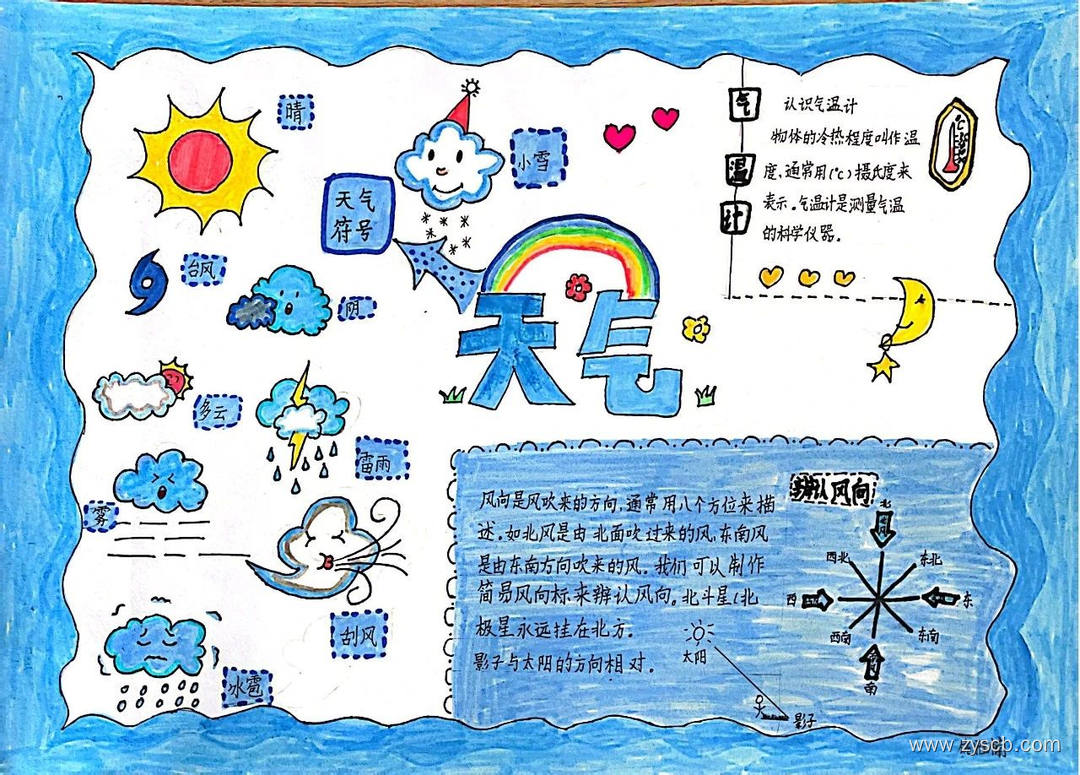 晴
小雪
天气
符号
台风
阴
多云
雷雨
雾
刮风
冰雹
天气
气
温
计
认识气温计
物体的冷热程度叫作温
度,通常用(℃)摄氏度来
表示。气温计是测量气温
的科学仪器.
℃
辨认风向
风向是风吹来的方向,通常用八个方位来描
述.如北风是由北面吹过来的风,东南风
是由东南方向吹来的风.我们可以制作
简易风向标来辨认风向。北斗星(北
极星永远挂在北方.
影子与太阳的方向相对.
太阳
影子
北
西北
东北
西
东
西南
东南
南
www.zyscb.com